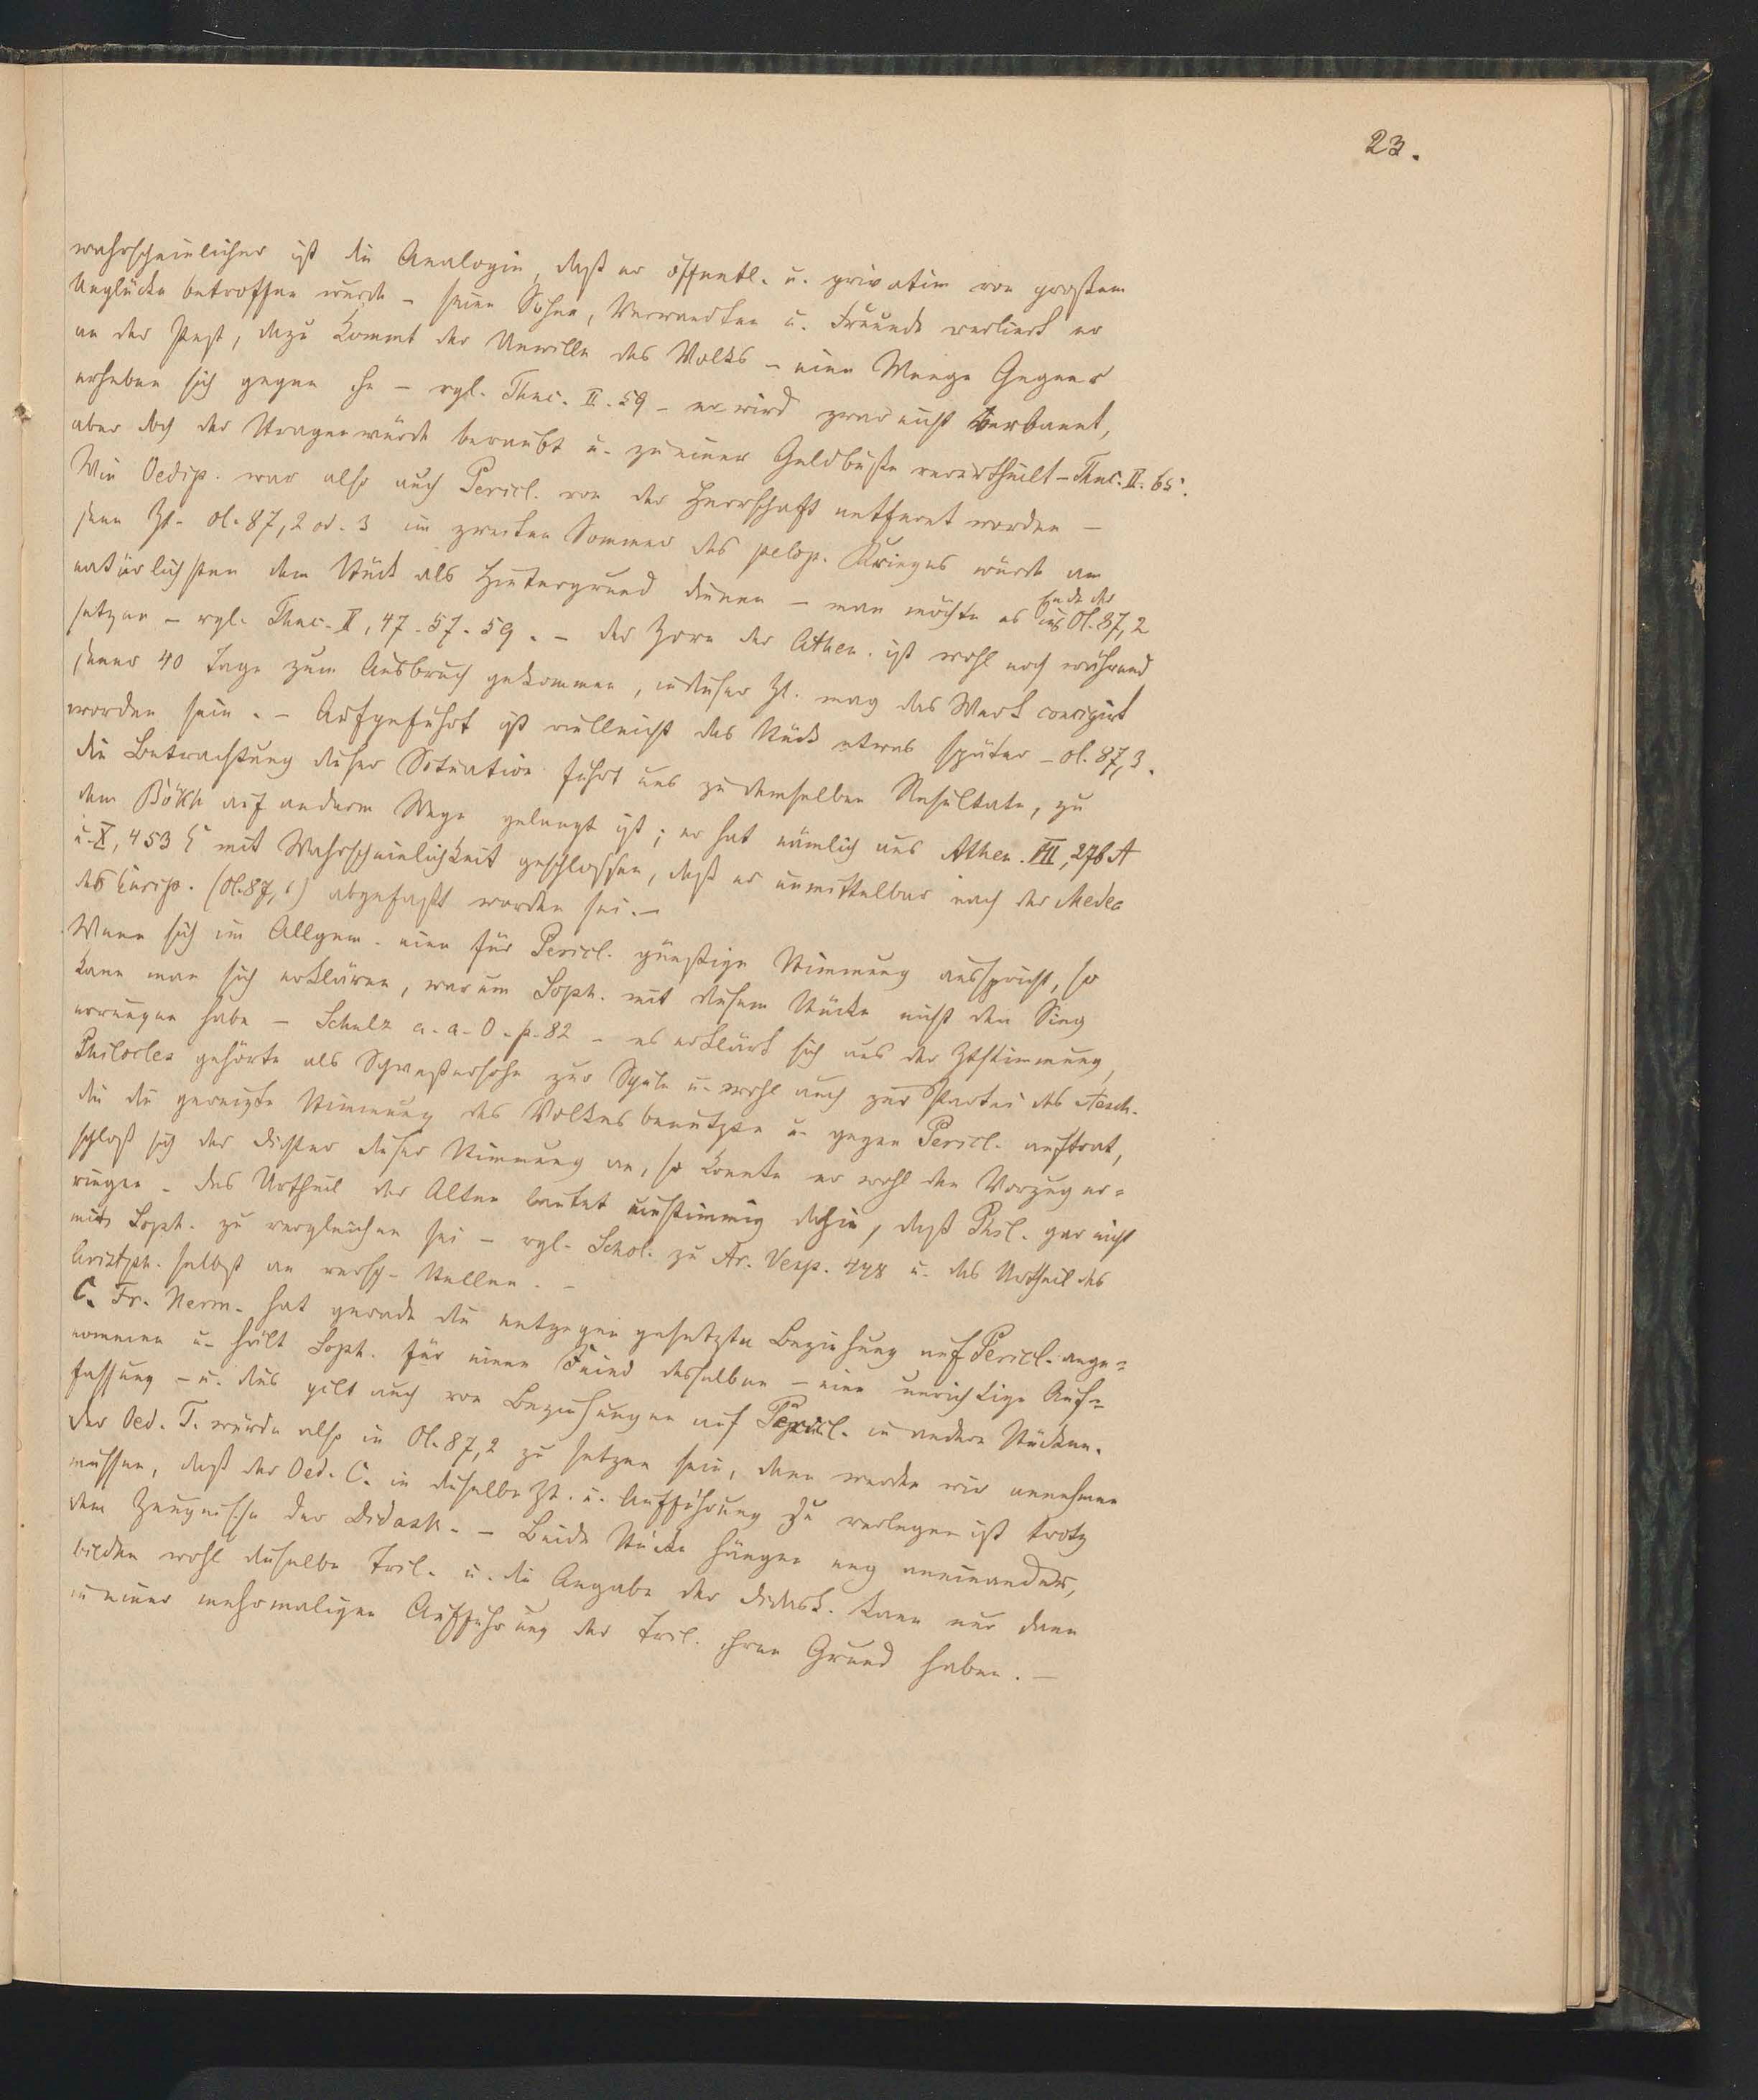 23.
wahrscheinlicher ist die Analogie, daß er öffentl. u. privatim von großem
Unglücke betroffen wurde – seine Söhne, Verwandten u. Freunde verliert er
an der Pest, dazu kommt der Unwille des Volks – eine Menge Gegner
erheben sich gegen ihn – vgl. Thuc. II. 59 – er wird zwar nicht verbannt,
aber doch der Strategenwürde beraubt u. zu einer Geldbuße verurtheilt – Thuc. II. 65.
Wie Oedip. war also auch Pericl. von der Herrschaft entfernt worden –
jene Zt. Ol. 87,2 od. 3 im zweiten Sommer des pelop. Krieges würde am
natürlichsten dem Stück als Hintergrund dienen – man möchte es ins Ende der Ol. 87,2
setzen – vgl. Thuc. II, 47. 57. 59. – der Zorn der Athen. ist wohl noch während
jener 40 Tage zum Ausbruch gekommen, in dieser Zt. mag das Werk concipirt
worden sein. – Aufgeführt ist vielleicht das Stück etwas später – Ol. 87,3.
die Betrachtung dieser Situation führt uns zu demselben Resultate, zu
dem Böckh auf anderem Wege gelangt ist; er hat nämlich aus Athen. VII, 276 A
u. X, 453 E mit Wahrscheinlichkeit geschlossen, daß er unmittelbar nach der Medea
des Eurip. (Ol. 87,1) abgefaßt worden sei. –
Wenn sich im Allgem. eine für Pericl. günstige Stimmung ausspricht, so
kann man sich erklären, warum Soph. mit diesem Stücke nicht den Sieg
errungen habe – Schulz a. a. O. p. 82 – es erklärt sich aus der Ztstimmung,
Philocles gehörte als Schwestersohn zur Schule u. wohl auch zur Partei des Aesch.
die die gereizte Stimmung des Volkes benutzte u. gegen Pericl. auftrat,
schloß sich der Dichter dieser Stimmung an, so konnte er wohl den Vorzug er=
ringen. Das Urtheil der Alten lautet einstimmig dahin, daß Phil. gar nicht
mit Soph. zu vergleichen sei – vgl. Schol. zu Ar. Vesp. 448 u. das Urtheil des
Aristoph. selbst an versch. Stellen. –
C. Fr. Herm. hat gerade die entgegen gesetzte Beziehung auf Pericl. ange=
nommen u. hält Soph. für einen Feind desselben – eine unrichtige Auf=
fassung – u. dies gilt auch von Beziehungen auf Pericl. in andern Stücken.
der Oed. T. würde also in Ol. 87,2 zu setzen sein, dann werden wir annehmen
müssen, daß der Oed. C. in dieselbe Zt. u. Aufführung zu verlegen ist trotz
dem Zeugnisse der Didask. – Beide Stücke hängen eng aneinander,
bilden wohl dieselbe Tril. u. die Angabe der Didask. kann nur dann
in einer mehrmaligen Aufführung der Tril. ihren Grund haben. –